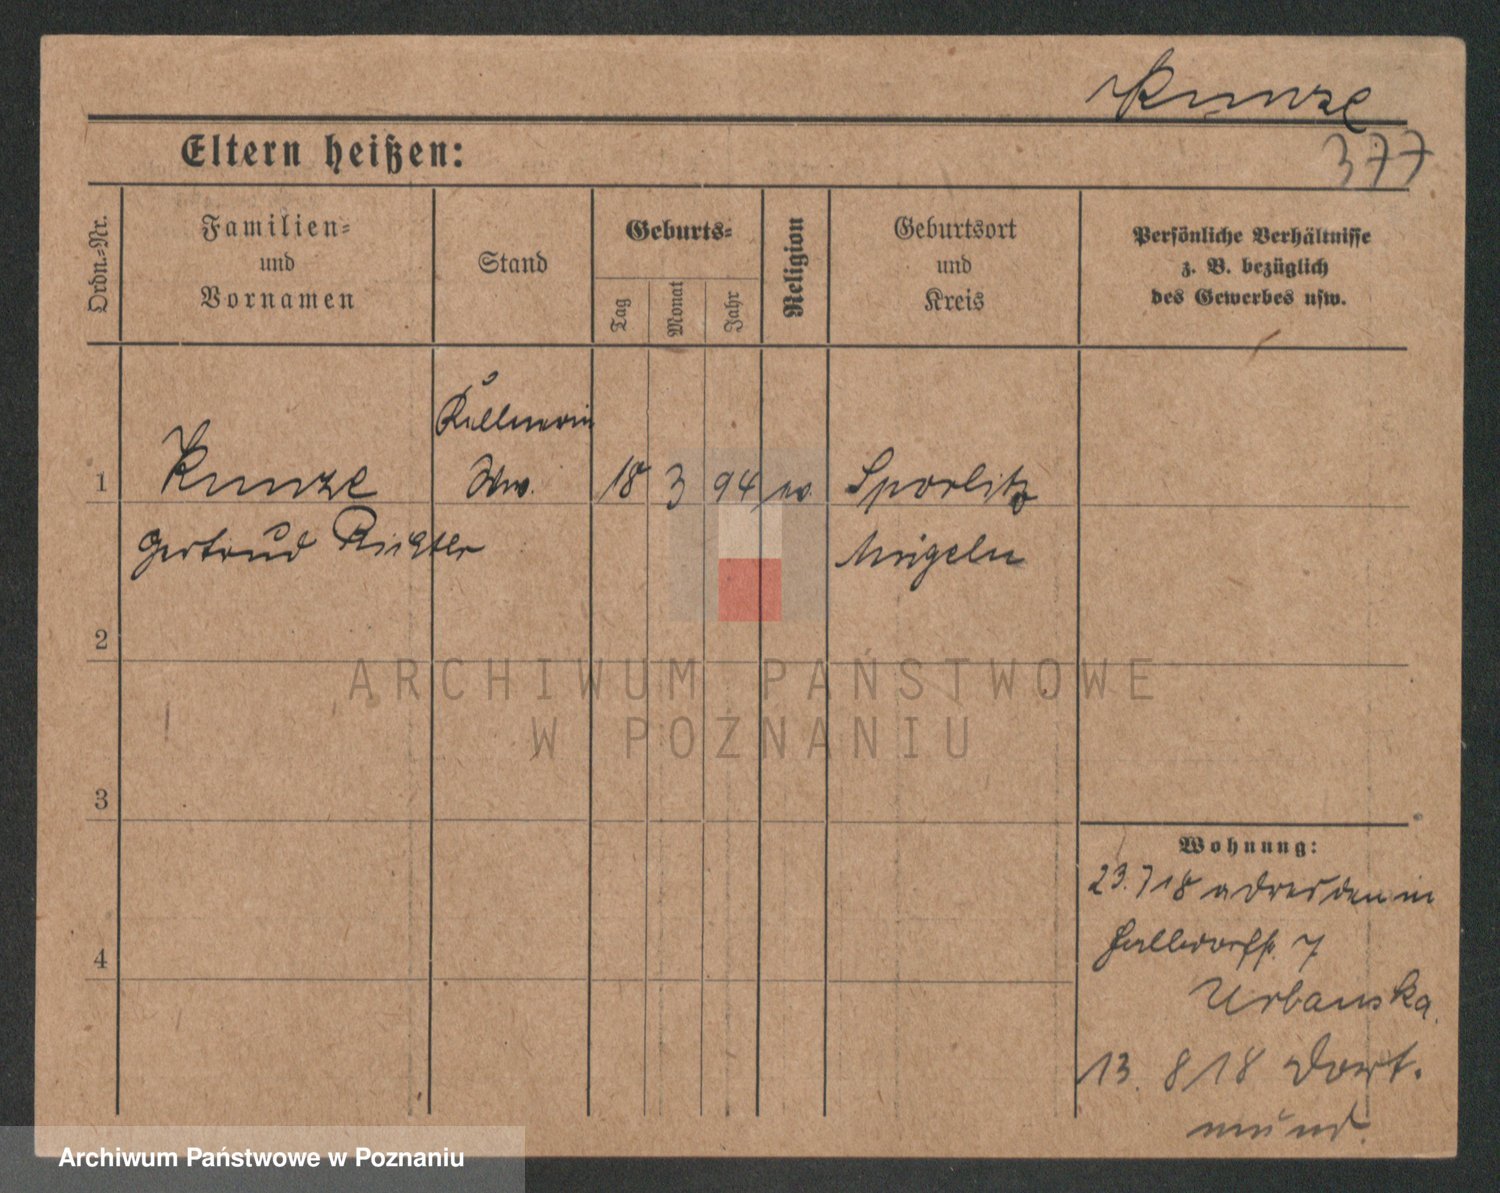 Kunze
377
Eltern heißen:
Ordn.-Nr.
Familien-
und
Vornamen
Stand
Geburts-
Tag
Monat
Jahr
Religion
Geburtsort
und
Kreis
Persönliche Verhältnisse
z. B. bezüglich
des Gewerbes usw.
Kellnerin
1 Kunze Ww. 18 3 94 ev. Sporlitz
Gertrud Richter Mügeln
2
3
4
Wohnung:
23.7 18 a Dresden in
7
Urbanska
13. 8 18 Dort-
mund.
ARCHIWUM PAŃSTWOWE
W POZNANIU
Archiwum Państwowe w Poznaniu